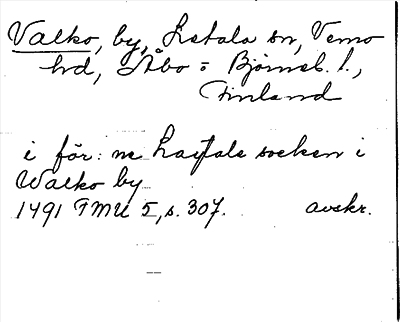 Valko, by, Letala sn, Vemo
hd, Åbo = Björneb. l.,
Finland
i för: ne Laytala socken i
Walko by
1491 FMU 5, s. 307. avskr.